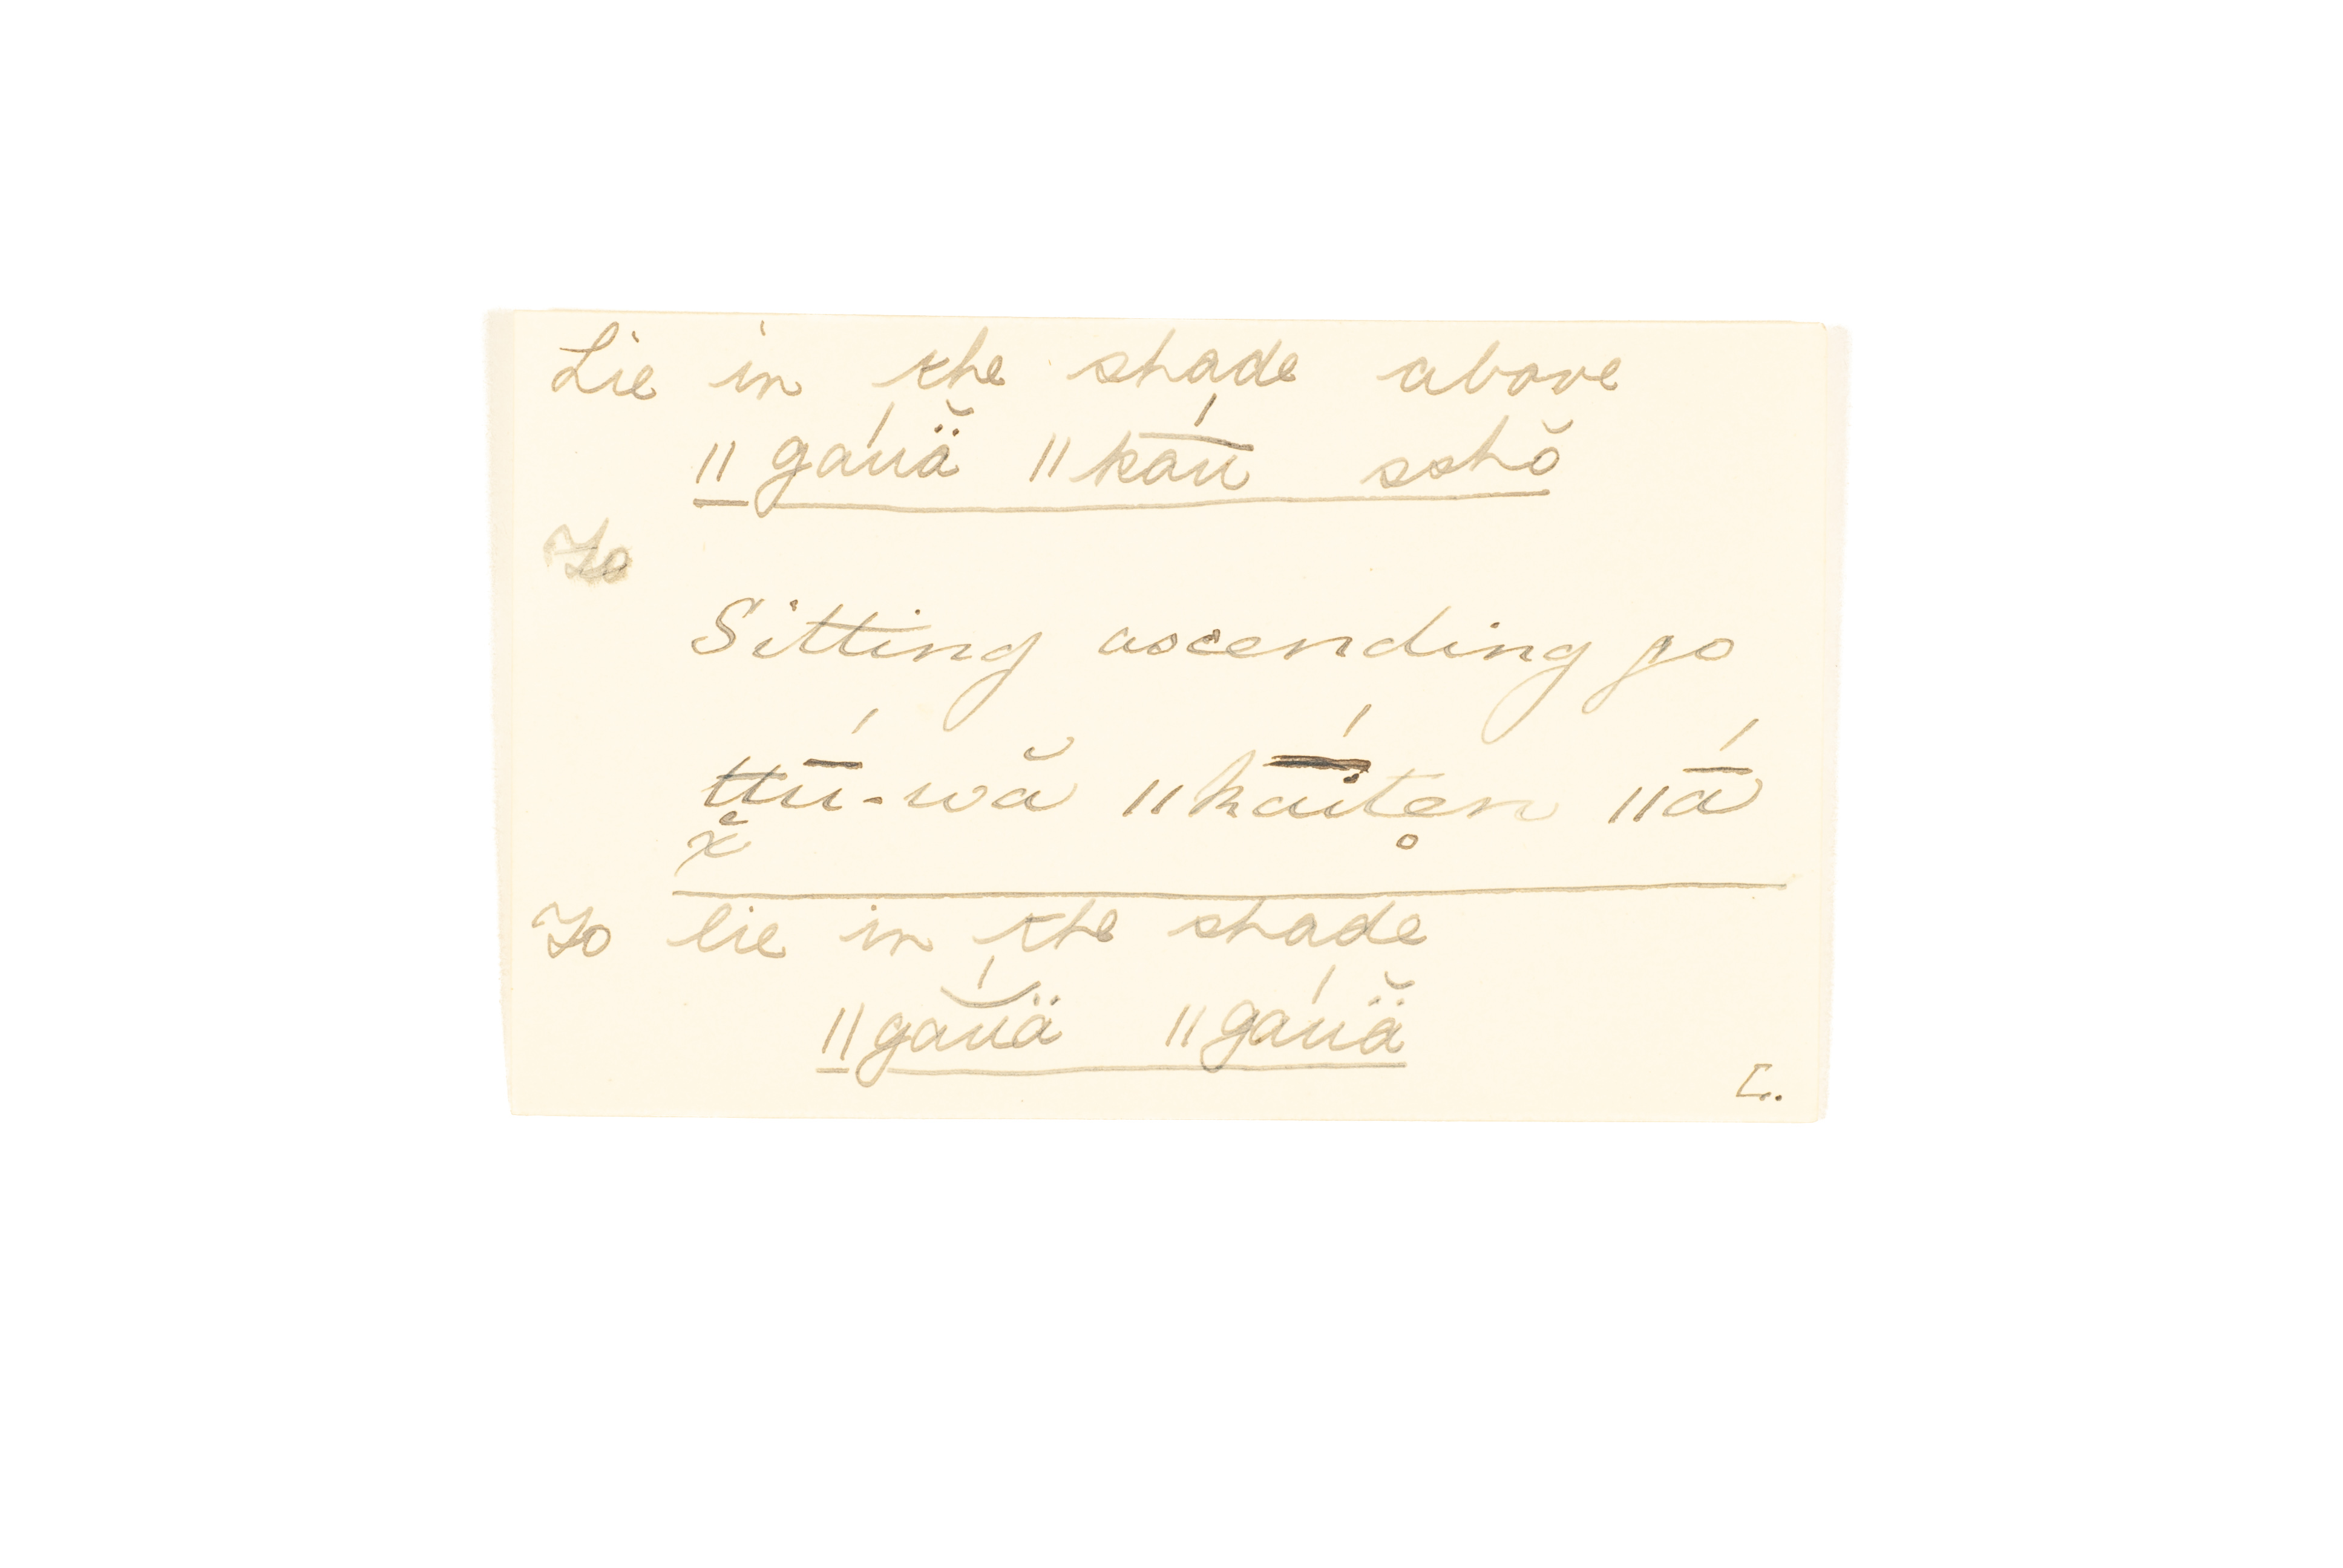 Lie in the shade above
ǁgáuä̆ ǁkā́u sshŏ
To
Sitting ascending go
ttū́-wă ǁkā́iten ǁā́
x̆
To lie in the shade
ǁgắuä ǁgáuä̆
L.